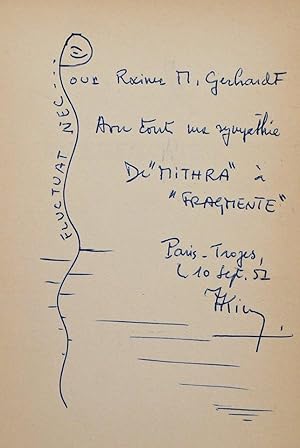 FLUCTUAT NEC...
our Rainer M. Gerhardt
Avec toute ma sympathie
De "MITHRA" à
"FRAGMENTE"
Paris-Troyes,
10 Sept. 52